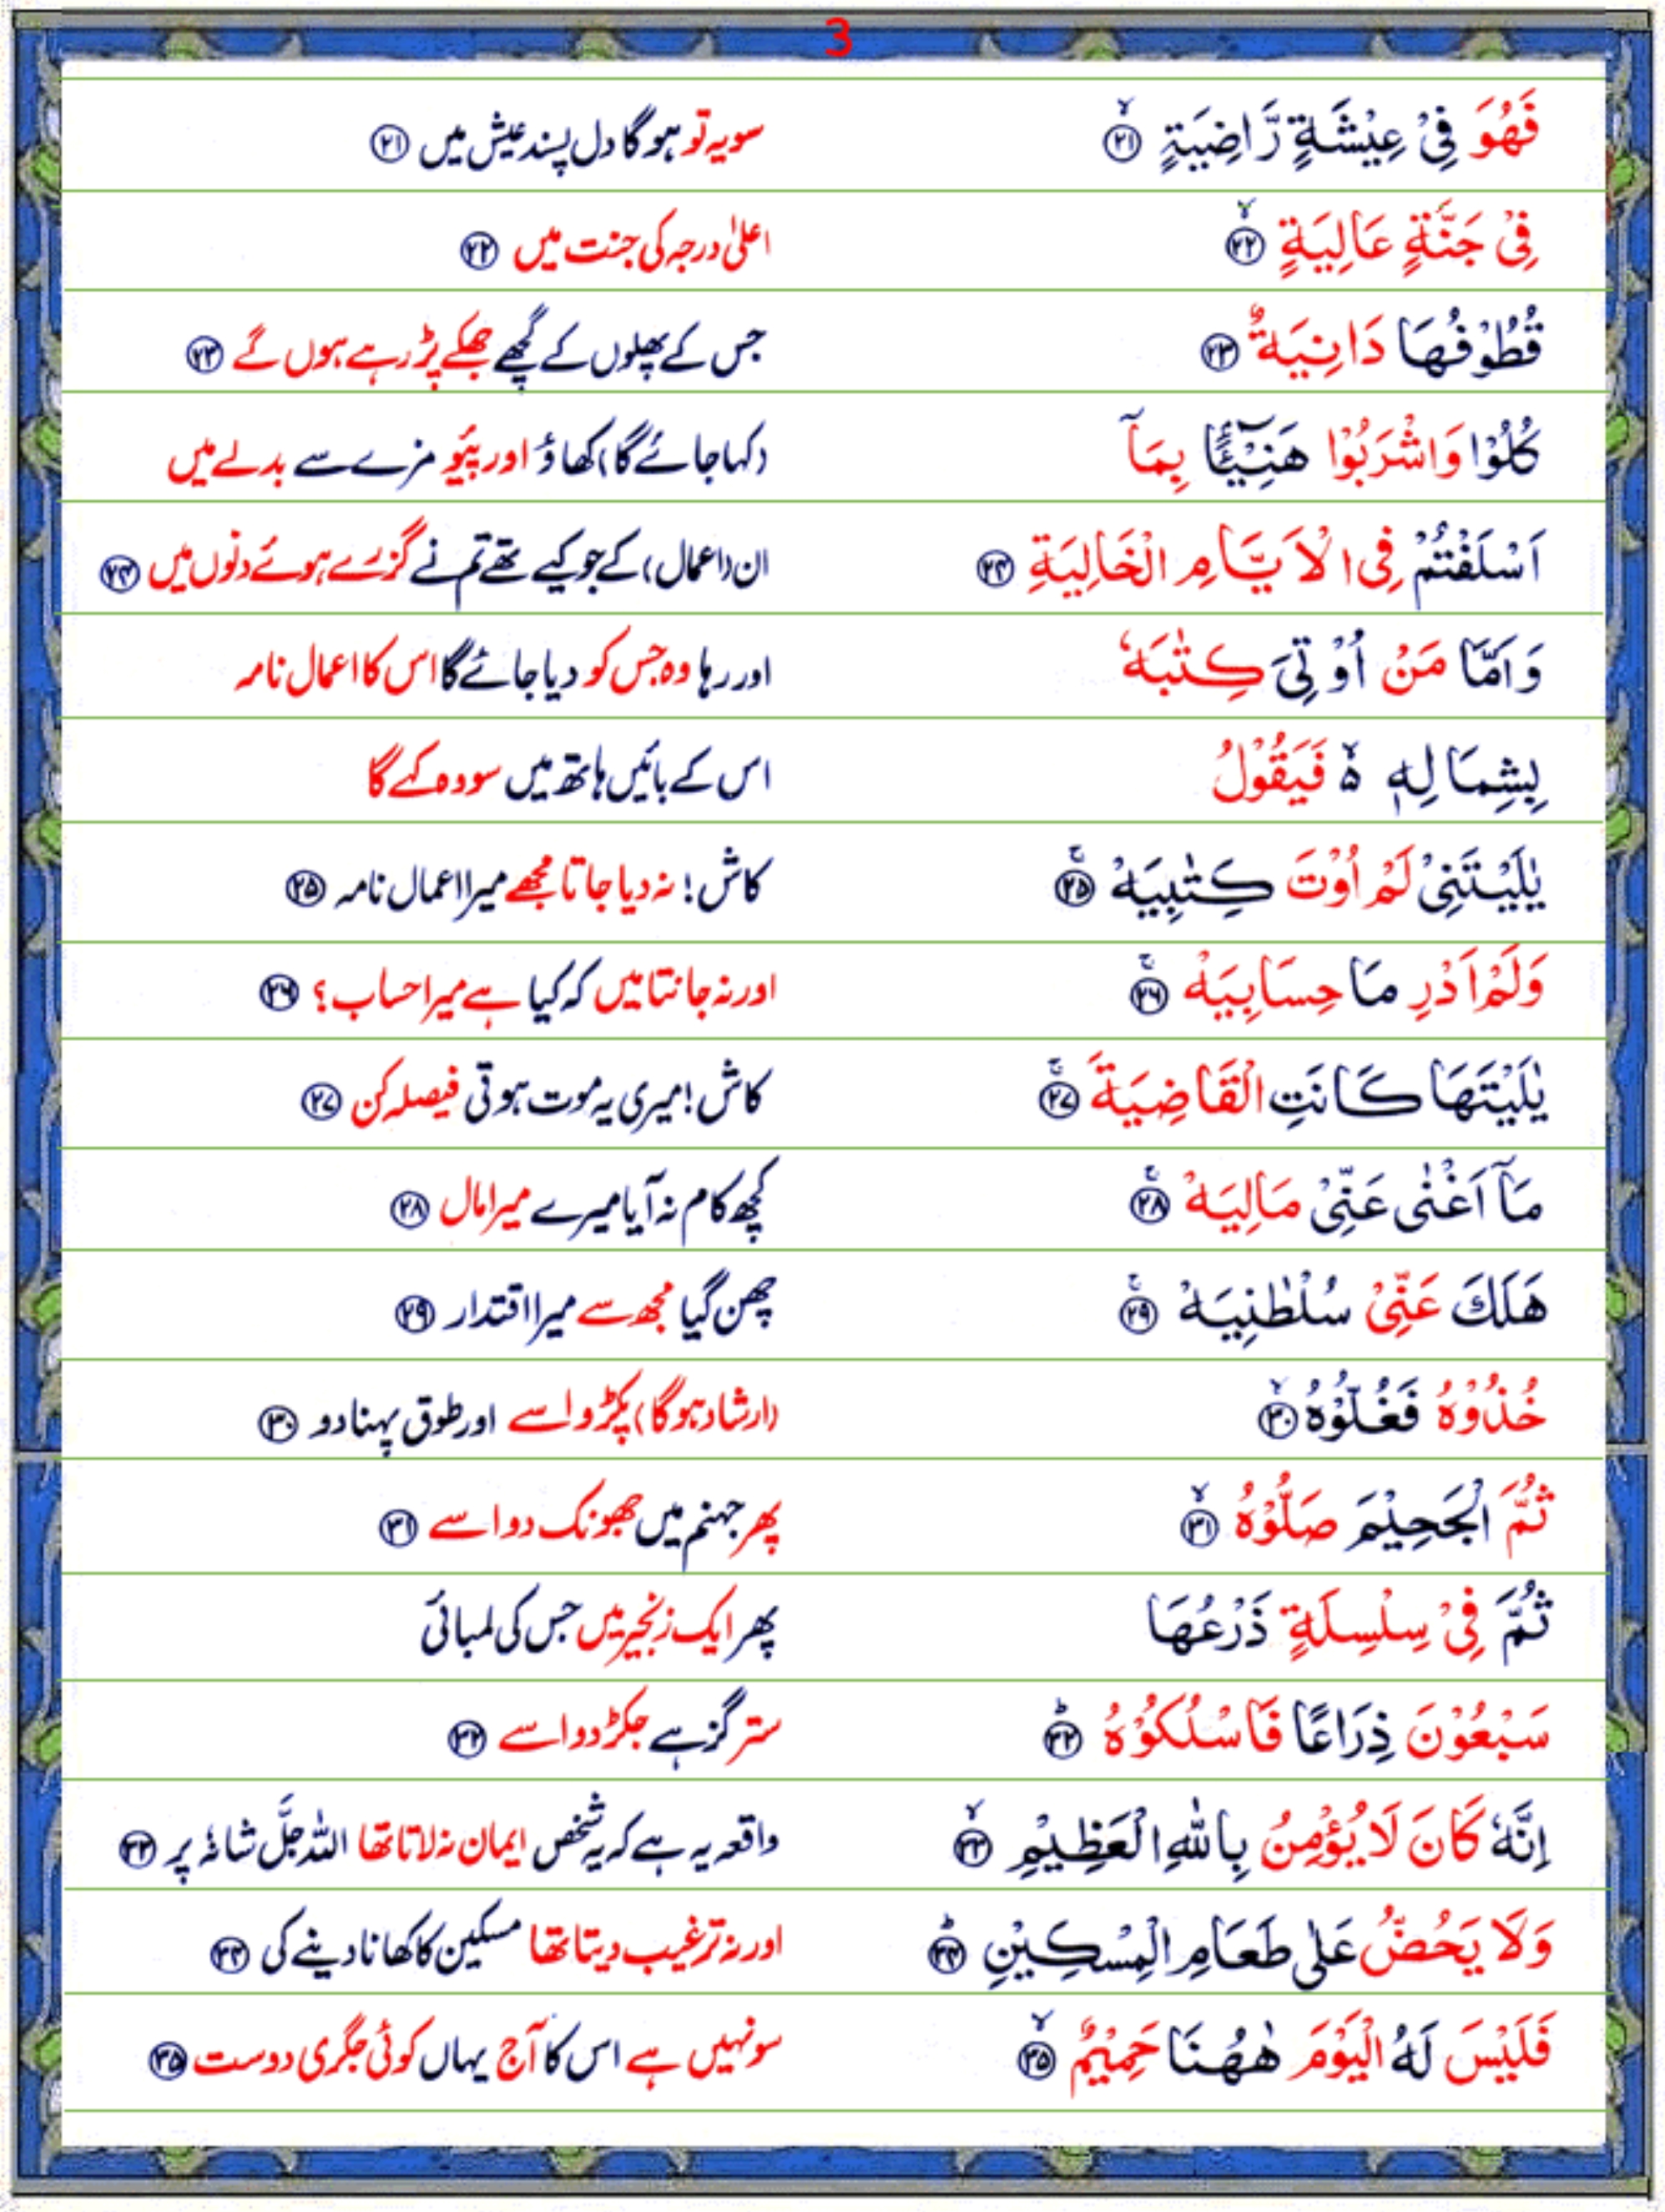 3
فَهُوَ فِیْ عِیْشَةٍ رَّاضِیَةٍ ۙ﴿۲۱﴾ سویہ تو ہوگا دل پسند عیش میں ﴿۲۱﴾
فِیْ جَنَّةٍ عَالِیَةٍ ۙ﴿۲۲﴾ اعلیٰ درجہ کی جنت میں ﴿۲۲﴾
قُطُوْفُهَا دَانِیَةٌ ﴿۲۳﴾ جس کے پھلوں کے گچھے جھکے پڑ رہے ہوں گے ﴿۲۳﴾
كُلُوْا وَاشْرَبُوْا هَنِیْٓئًۢا بِمَاۤ (کہا جائے گا) کھاؤ اور پیئو مزے سے بدلے میں
اَسْلَفْتُمْ فِی الْاَیَّامِ الْخَالِیَةِ ﴿۲۴﴾ ان (اعمال) کے جو کیے تھے تم نے گزرے ہوئے دنوں میں ﴿۲۴﴾
وَاَمَّا مَنْ اُوْتِیَ كِتٰبَهٗ اور رہا وہ جس کو دیا جائے گا اس کا اعمال نامہ
بِشِمَالِهٖ ۙ۬ فَیَقُوْلُ اس کے بائیں ہاتھ میں سو وہ کہے گا
یٰلَیْتَنِیْ لَمْ اُوْتَ كِتٰبِیَهْ ۚ﴿۲۵﴾ کاش! نہ دیا جاتا مجھے میرا اعمال نامہ ﴿۲۵﴾
وَلَمْ اَدْرِ مَا حِسَابِیَهْ ۚ﴿۲۶﴾ اور نہ جانتا میں کہ کیا ہے میرا حساب؟ ﴿۲۶﴾
یٰلَیْتَهَا كَانَتِ الْقَاضِیَةَ ۚ﴿۲۷﴾ کاش! میری یہ موت ہوتی فیصلہ کن ﴿۲۷﴾
مَاۤ اَغْنٰی عَنِّیْ مَالِیَهْ ۚ﴿۲۸﴾ کچھ کام نہ آیا میرے میرا مال ﴿۲۸﴾
هَلَكَ عَنِّیْ سُلْطٰنِیَهْ ۚ﴿۲۹﴾ چھن گیا مجھ سے میرا اقتدار ﴿۲۹﴾
خُذُوْهُ فَغُلُّوْهُ ۙ﴿۳۰﴾ (ارشاد ہوگا) پکڑو اسے اور طوق پہنا دو ﴿۳۰﴾
ثُمَّ الْجَحِیْمَ صَلُّوْهُ ۙ﴿۳۱﴾ پھر جہنم میں جھونک دو اسے ﴿۳۱﴾
ثُمَّ فِیْ سِلْسِلَةٍ ذَرْعُهَا پھر ایک زنجیر میں جس کی لمبائی
سَبْعُوْنَ ذِرَاعًا فَاسْلُكُوْهُ ؕ﴿۳۲﴾ ستر گز ہے جکڑ دو اسے ﴿۳۲﴾
اِنَّهٗ كَانَ لَا یُؤْمِنُ بِاللّٰهِ الْعَظِیْمِ ۙ﴿۳۳﴾ واقعہ یہ ہے کہ یہ شخص ایمان نہ لاتا تھا اللہ جلَّ شانہٗ پر ﴿۳۳﴾
وَلَا یَحُضُّ عَلٰی طَعَامِ الْمِسْكِیْنِ ؕ﴿۳۴﴾ اور نہ ترغیب دیتا تھا مسکین کا کھانا دینے کی ﴿۳۴﴾
فَلَیْسَ لَهُ الْیَوْمَ هٰهُنَا حَمِیْمٌ ۙ﴿۳۵﴾ سو نہیں ہے اس کا آج یہاں کوئی جگری دوست ﴿۳۵﴾